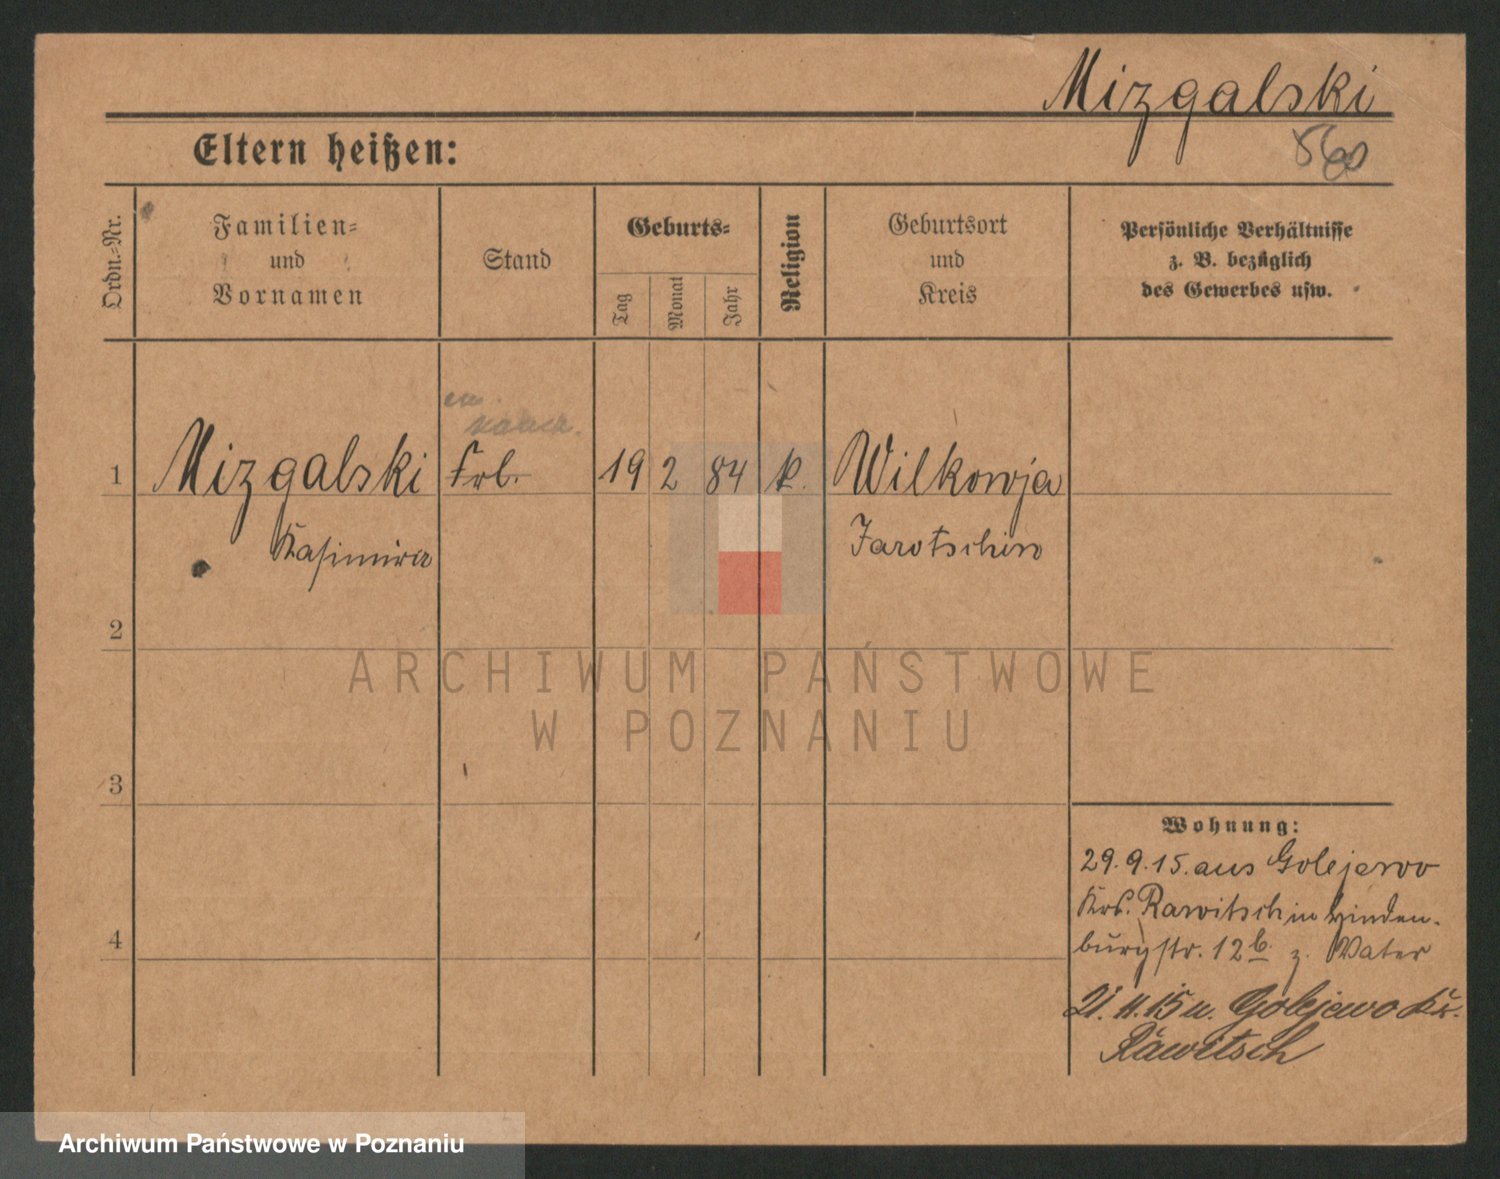 Mizgalski
Eltern heißen:
860
Ordn.-Nr.
Familien-
und
Vornamen
Stand
Geburts-
Tag
Monat
Jahr
Religion
Geburtsort
und
Kreis
Persönliche Verhältnisse
z. B. bezüglich
des Gewerbes usw.
1
Mizgalski
Frl.
19
2
84
k.
Wilkowja
Kasimira
Jarotschin
2
3
4
Wohnung:
29.9.15. aus Golejewo
Krs. Rawitsch in Hinden-
burgstr. 12 b. z. Vater
21.11.15 n. Golejewo Kr.
Rawitsch
ARCHIWUM PAŃSTWOWE
W POZNANIU
Archiwum Państwowe w Poznaniu